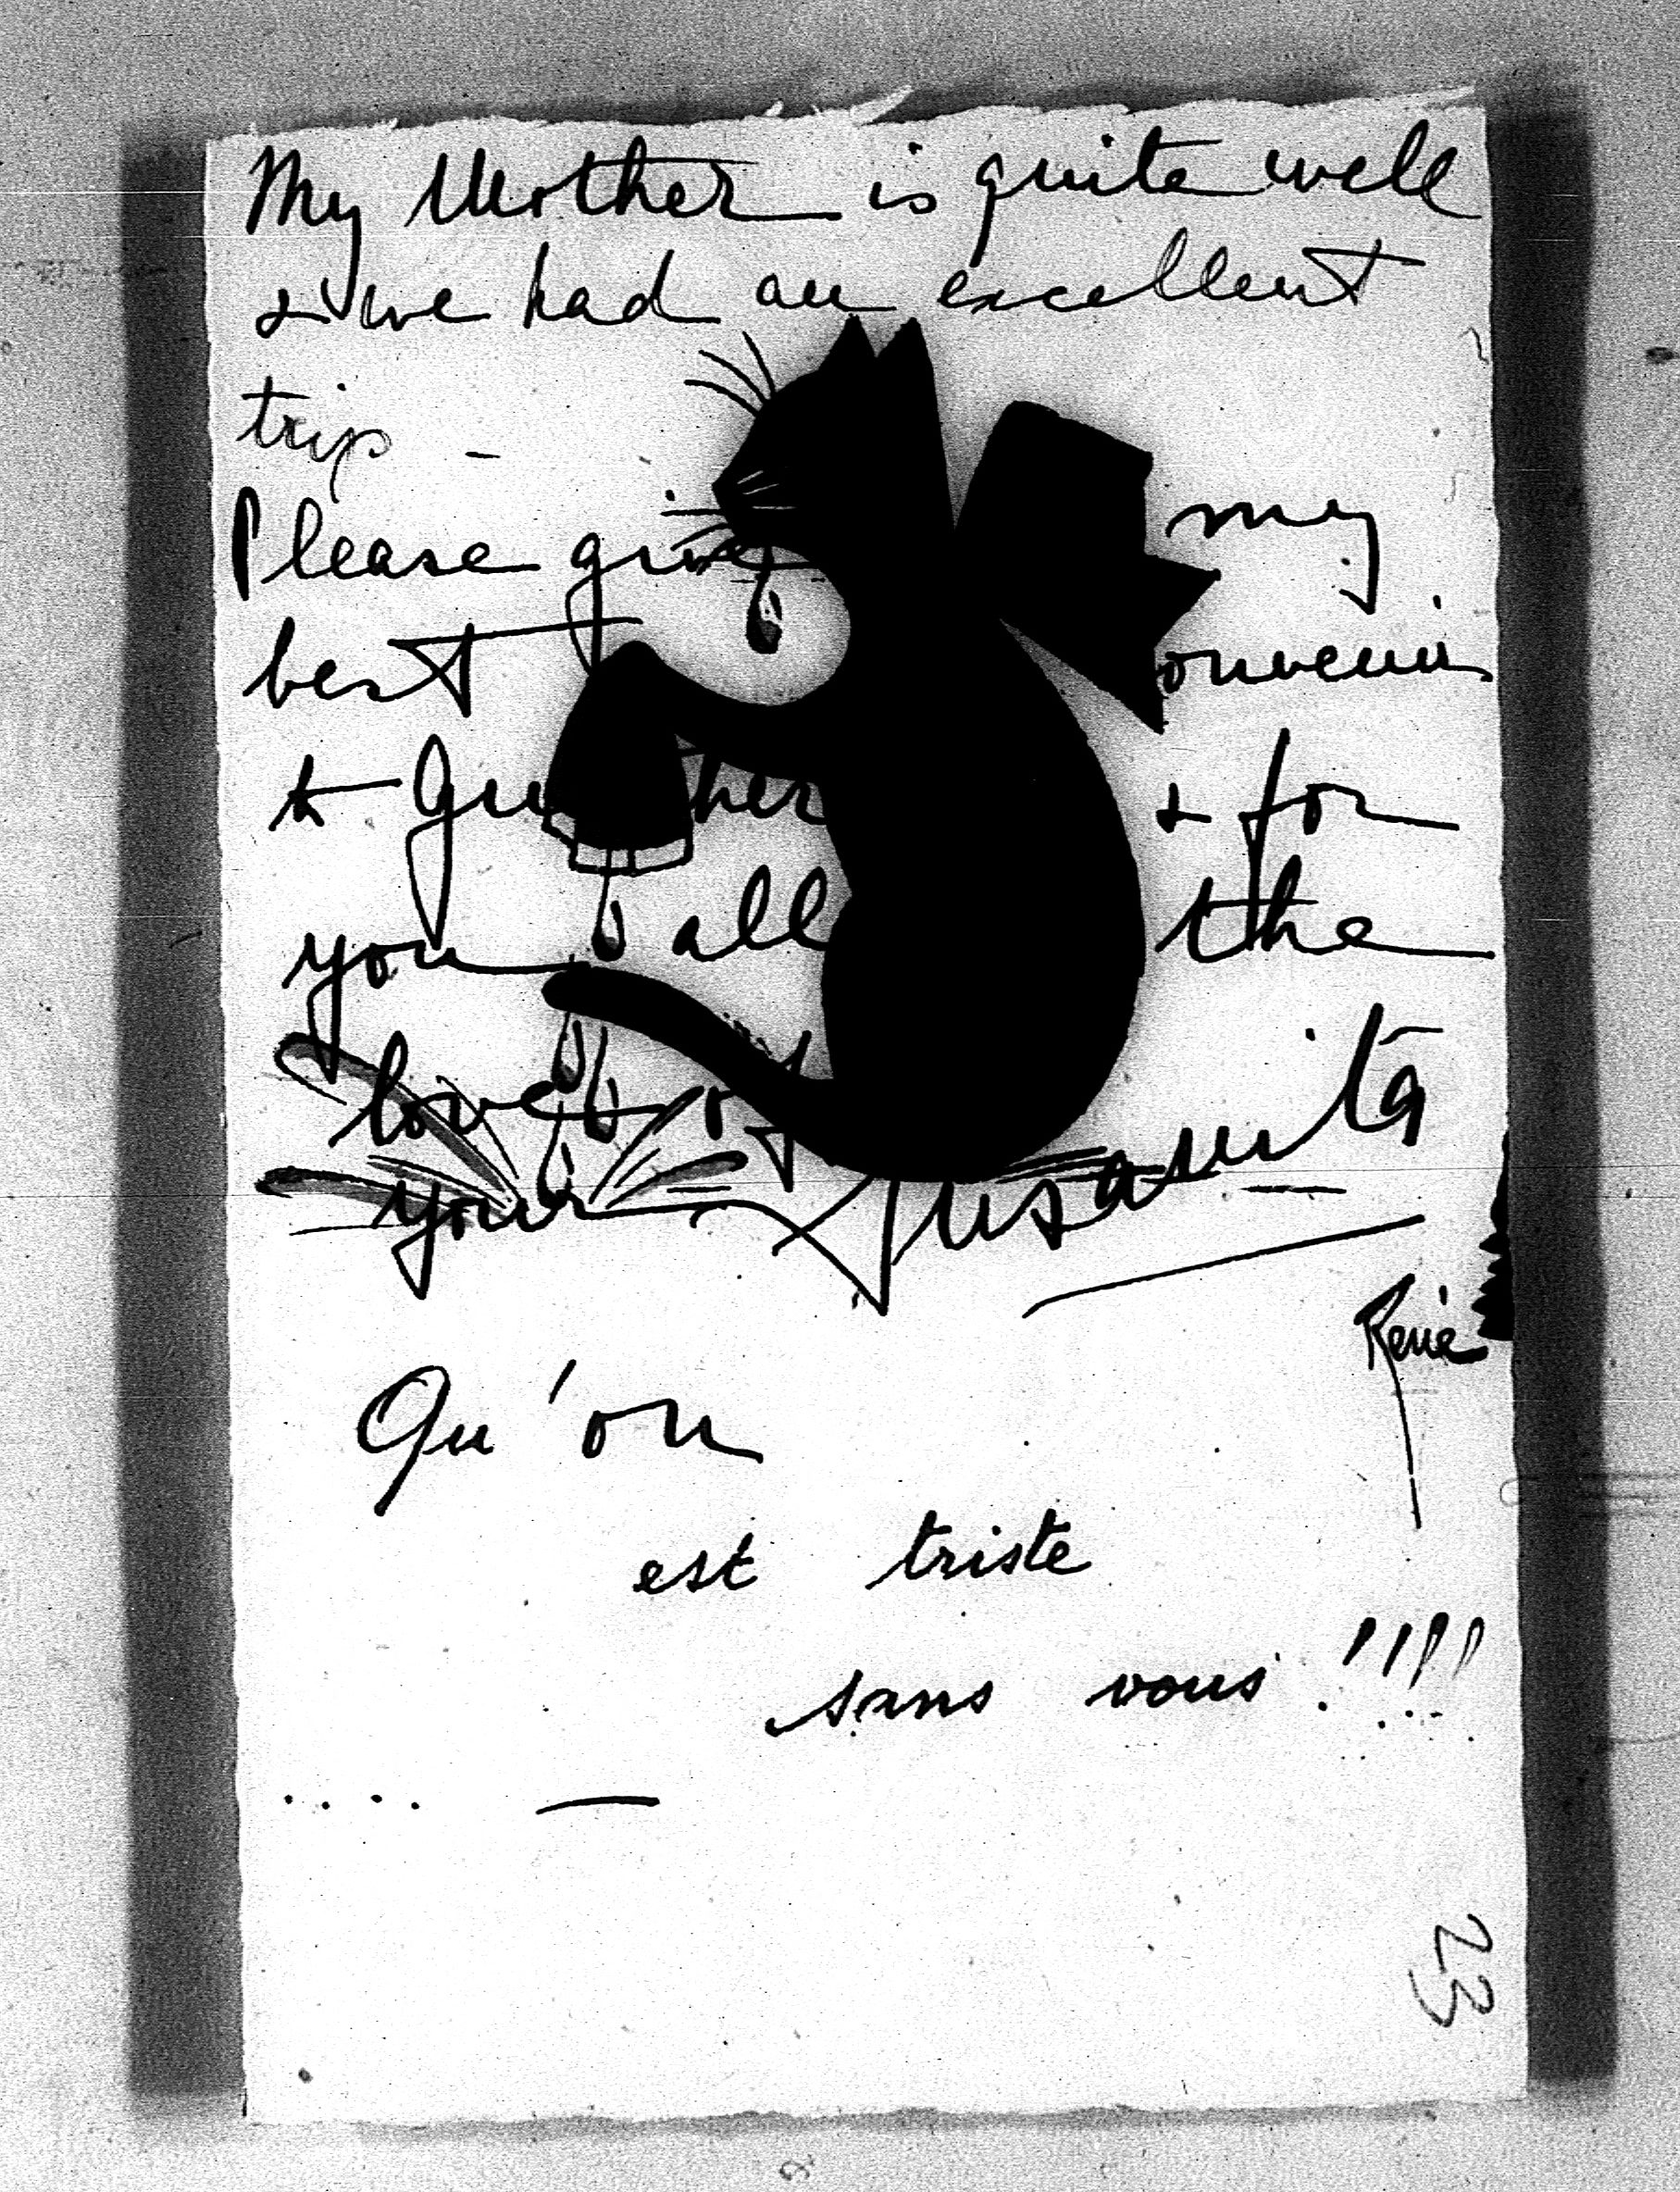 My Mother is quite well
& we had an excellent
trip -
Please give my
best souvenirs
to Gunther & for
you all the
love of
your Susanita
René
Qu'on
est triste
sans vous !!!!
.... —
23